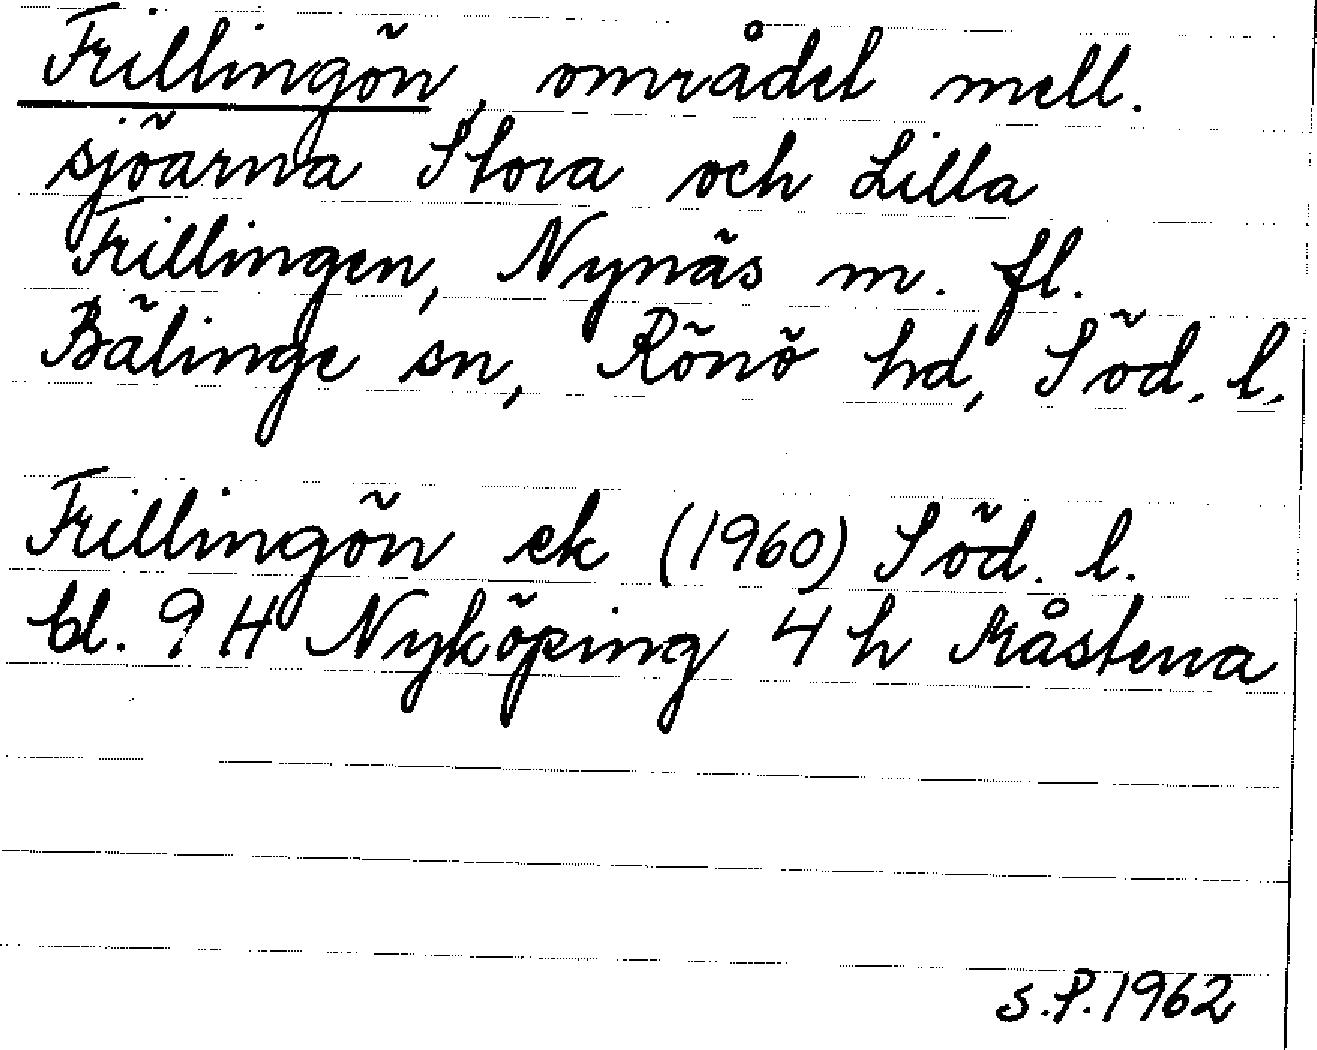 Frillingön, området mell.
sjöarna Stora och Lilla
Frillingen, Nynäs m. fl.
Bälinge sn, Rönö hd, Söd. l.
Frillingön ek (1960) Söd. l.
bl. 9 H Nyköping 4 h Måstena
S.P. 1962